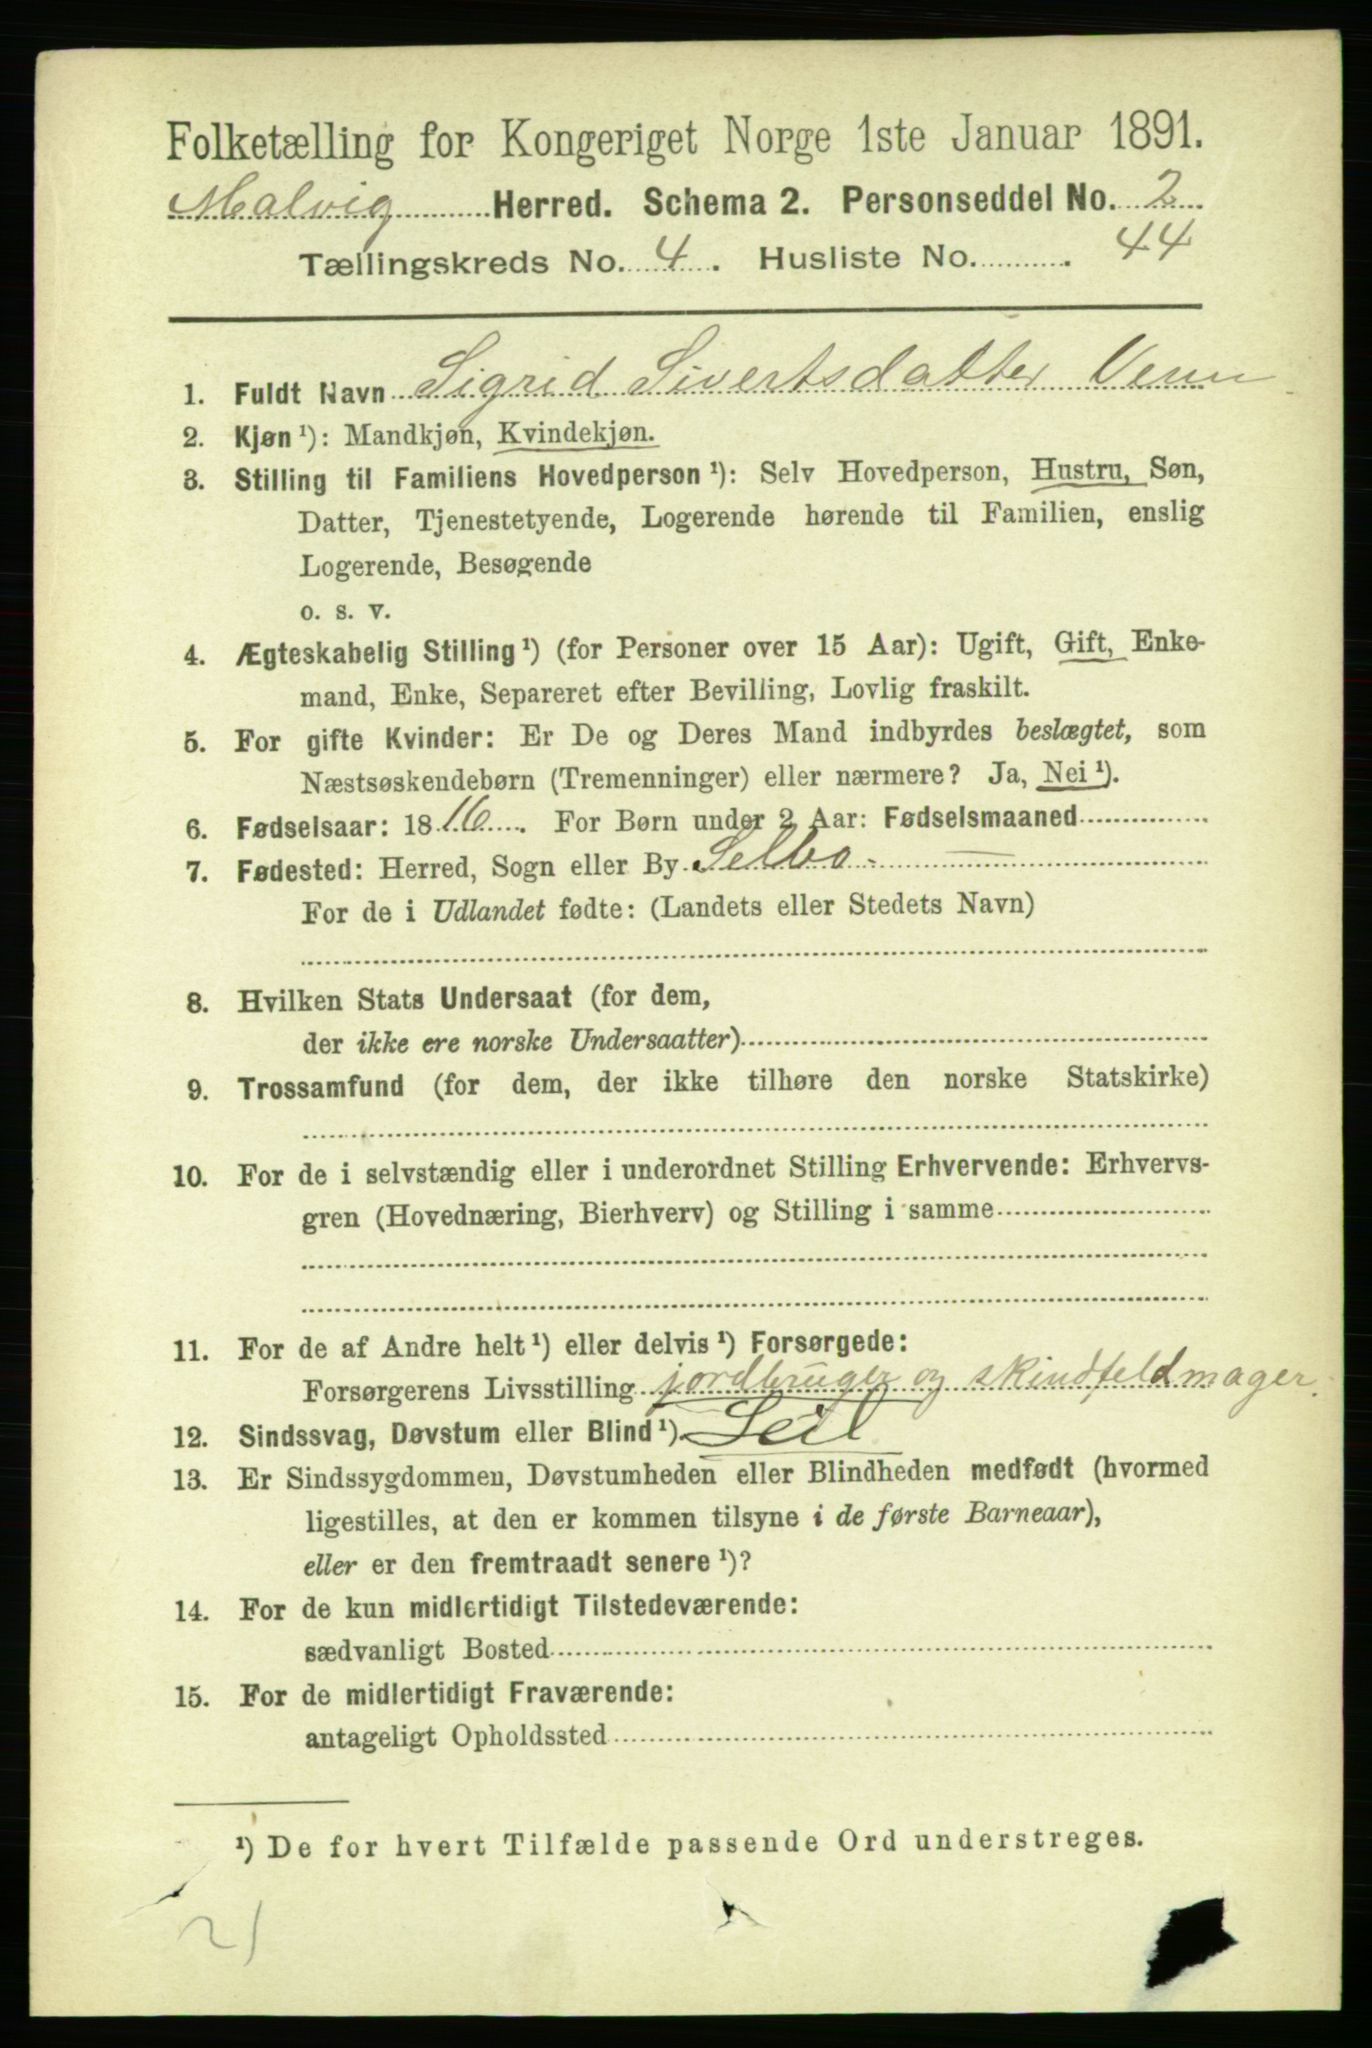 Folketælling for Kongeriget Norge 1ste Januar 1891.
Malvig Herred. Schema 2. Personseddel No. 2
Tællingskreds No. 4. Husliste No. 44
1. Fuldt Navn Sigrid Sivertsdatter
2. Kjøn ¹): Mandkjøn, Kvindekjøn.
3. Stilling til Familiens Hovedperson ¹): Selv Hovedperson, Hustru, Søn,
Datter, Tjenestetyende, Logerende hørende til Familien, enslig
Logerende, Besøgende
o. s. v.
4. Ægteskabelig Stilling ¹) (for Personer over 15 Aar): Ugift, Gift, Enke-
mand, Enke, Separeret efter Bevilling, Lovlig fraskilt.
5. For gifte Kvinder: Er De og Deres Mand indbyrdes beslægtet, som
Næstsøskendebørn (Tremenninger) eller nærmere? Ja, Nei ¹).
6. Fødselsaar: 1816. For Børn under 2 Aar: Fødselsmaaned
7. Fødested: Herred, Sogn eller By Selbo
For de i Udlandet fødte: (Landets eller Stedets Navn)
8. Hvilken Stats Undersaat (for dem,
der ikke ere norske Undersaatter)
9. Trossamfund (for dem, der ikke tilhøre den norske Statskirke)
10. For de i selvstændig eller i underordnet Stilling Erhvervende: Erhvervs-
gren (Hovednæring, Bierhverv) og Stilling i samme
11. For de af Andre helt ¹) eller delvis ¹) Forsørgede:
Forsørgerens Livsstilling jordbruger og skindfeldmager.
12. Sindssvag, Døvstum eller Blind ¹).
13. Er Sindssygdommen, Døvstumheden eller Blindheden medfødt (hvormed
ligestilles, at den er kommen tilsyne i de første Barneaar),
eller er den fremtraadt senere ¹)?
14. For de kun midlertidigt Tilstedeværende:
sædvanligt Bosted
15. For de midlertidigt Fraværende:
antageligt Opholdssted
¹) De for hvert Tilfælde passende Ord understreges.
21